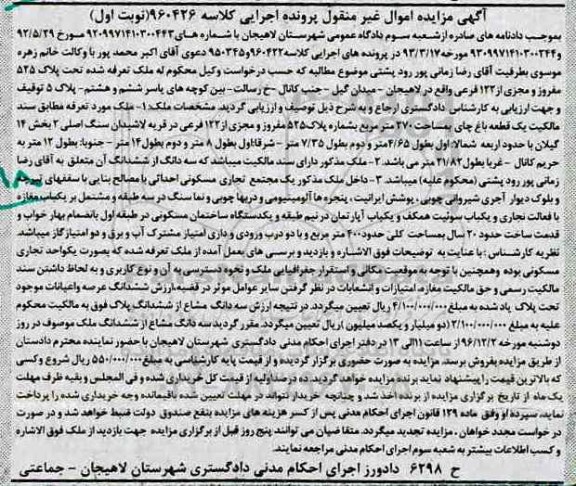 آگهی مزایده اموال غیر منقول پرونده اجرایی کلاسه ۹۶۰۴۲۶(نوبت اول)
بموجب دادنامه های صادره ازشعبه سوم دادگاه عمومی شهرستان لاهیجان با شماره های۹۲۰۹۹۷۱۴۱۰۳۰۰۴۴۳ مورخ ۹۲/۵/۲۹
و۹۳۰۹۹۷۱۴۱۰۳۰۰۲۴۴ مورخه۹۳/۳/۱۷ در پرونده های اجرایی کلاسه۹۶۰۴۲۲و۹۵۰۳۴۵ دعوی آقای اکبر محمد پور با وکالت خانم زهره
موسوی بطرفیت آقای رضا زمانی پور رود پشتی موضوع مطالبه که حسب درخواست وکیل محکوم له ملک تعرفه شده تحت پلاک ۵۲۵
مفروز و مجزی از۱۲۲ فرعی واقع در لاهیجان - میدان گیل - جنب کانال -خ رسالت- بین کوچه های یاسر ششم و هشتم- پلاک ۵ توقیف
و جهت ارزیابی به کارشناس دادگستری ارجاع و به شرح ذیل توصیف و ارزیابی گردید. مشخصات ملک: ۱- ملک مورد تعرفه مطابق سند
مالکیت یک قطعه باغ چای بمساحت ۲۷۰ متر مربع بشماره پلاک۵۲۵ مفروز و مجزی از۱۲۲ فرعی در قریه لاشیدان سنگ اصلی ۲ بخش ۱۴
گیلان با حدود اربعه شمالا: اول بطول ۴/۶۵متر و دوم بطول ۷/۳۵ متر - شرقا:اول بطول ۸ متر و دوم بطول۱۴ متر - جنوبا: بطول ۱۲ متر به
حریم کانال - غربا بطول۲۱/۸۲ متر می باشد. ۲- ملک مذکور دارای سند مالکیت میباشد که سه دانگ از ششدانگ آن متعلق به آقای رضا
زمانی پور رود پشتی (محکوم علیه) میباشد. ۳- داخل ملک مذکور یک مجتمع تجاری مسکونی احداثی با مصالح بنایی با سقفهای
و بلوک دیوار آجری شیروانی چوبی، پوشش ایرانیت، پنجره ها آلومینیومی و دربها چوبی و نما سنگ در سه طبقه و مشتمل بر یکباب مغازه
با فعالیت نجاری و یکباب سوئیت همکف و یکباب آپارتمان در نیم طبقه و یکدستگاه ساختمان مسکونی در طبقه اول بانضمام بهار خواب و
قدمت ساخت حدود ۲۰ سال بمساحت کلی حدود۴۰۰ متر مربع و با دو درب ورودی و دارای امتیاز مشترک آب و برق و دو امتیازگاز میباشد.
نظریه کارشناس : با عنایت به توضیحات فوق الاشباره و بازدید و بررسی های بعمل آمده از ملک تعرفه شده که بصورت یکواحد تجاری
مسکونی بوده وهمچنین با توجه به موقعیت مکانی و استقرار جغرافیایی ملک و نحوه دسترسی به آن و نوع کاربری و به لحاظ داشتن سند
مالکیت رسمی و حق مالکیت مغازه، امتیازات و انشعابات در نظر گرفتن سایر عوامل موثر در قضیه،ارزش ششدانگ عرصه واعیانات موجود
تحت پلاک یاد شده به مبلغ ۴/۱۰۰/۰۰۰/۰۰۰ ریال تعیین میگردد. در نتیجه ارزش سه دانگ مشاع از ششدانگ پلاک فوق به مالکیت محکوم
علیه به مبلغ ۲/۱۰۰/۰۰۰/۰۰۰ (دو میلیار و یکصد میلیون )ریال تعیین میگردد. مقرر گردید سه دانگ مشاع از ششدانگ ملک موصوف در روز
دوشنبه مورخه ۹۶/۱۲/۲ از ساعت ۱۱الی ۱۳ در دفتر اجرای احکام مدنی دادگستری شهرستان لاهیجان با حضور نماینده محترم دادستان
از طریق مزایده بفروش برسد. مزایده به صورت حضوری برگزار گردیده و از قیمت پایه کارشناسی به مبلغ۵۵۰/۰۰۰/۰۰۰ ریال شروع وکسی
که بالاترین قیمت را پیشنهاد نماید برنده مزایده خواهد گردید. ده درصداولیه از قیمت کل خریداری شده و فی المجلس و بقیه ظرف مهلت
یک ماه از تاریخ برگزاری مزایده از برنده اخذ شد و چنانچه خریدار نتواند در مهلت تعیین شده باقیمانده وجه خریداری شده را پرداخت
نماید، سپرده او وفق ماده ۱۲۹ قانون اجرای احکام مدنی پس از کسر هزینه های مزایده بنفع صندوق دولت ضبط خواهد شد و در صورت
در خواست مجدد خواهان ، مزایده تجدید میگردد. متقاضیان می توانند پنج روز قبل از برگزاری مزایده جهت بازدید از ملک فوق الاشاره
و کسب اطلاعات بیشتر به شعبه سوم اجرای احکام مدنی مراجعه نمایند.
ح ۶۲۹۸ دادورز اجرای احکام مدنی دادگستری شهرستان لاهیجان - جماعتی